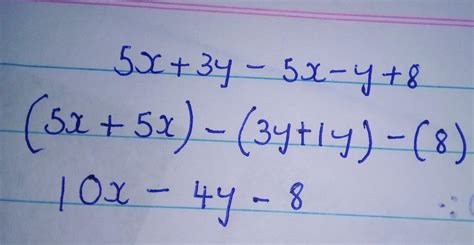 5x + 3y - 5x - y + 8
(5x + 5x) - (3y + 1y) - (8)
10x - 4y - 8